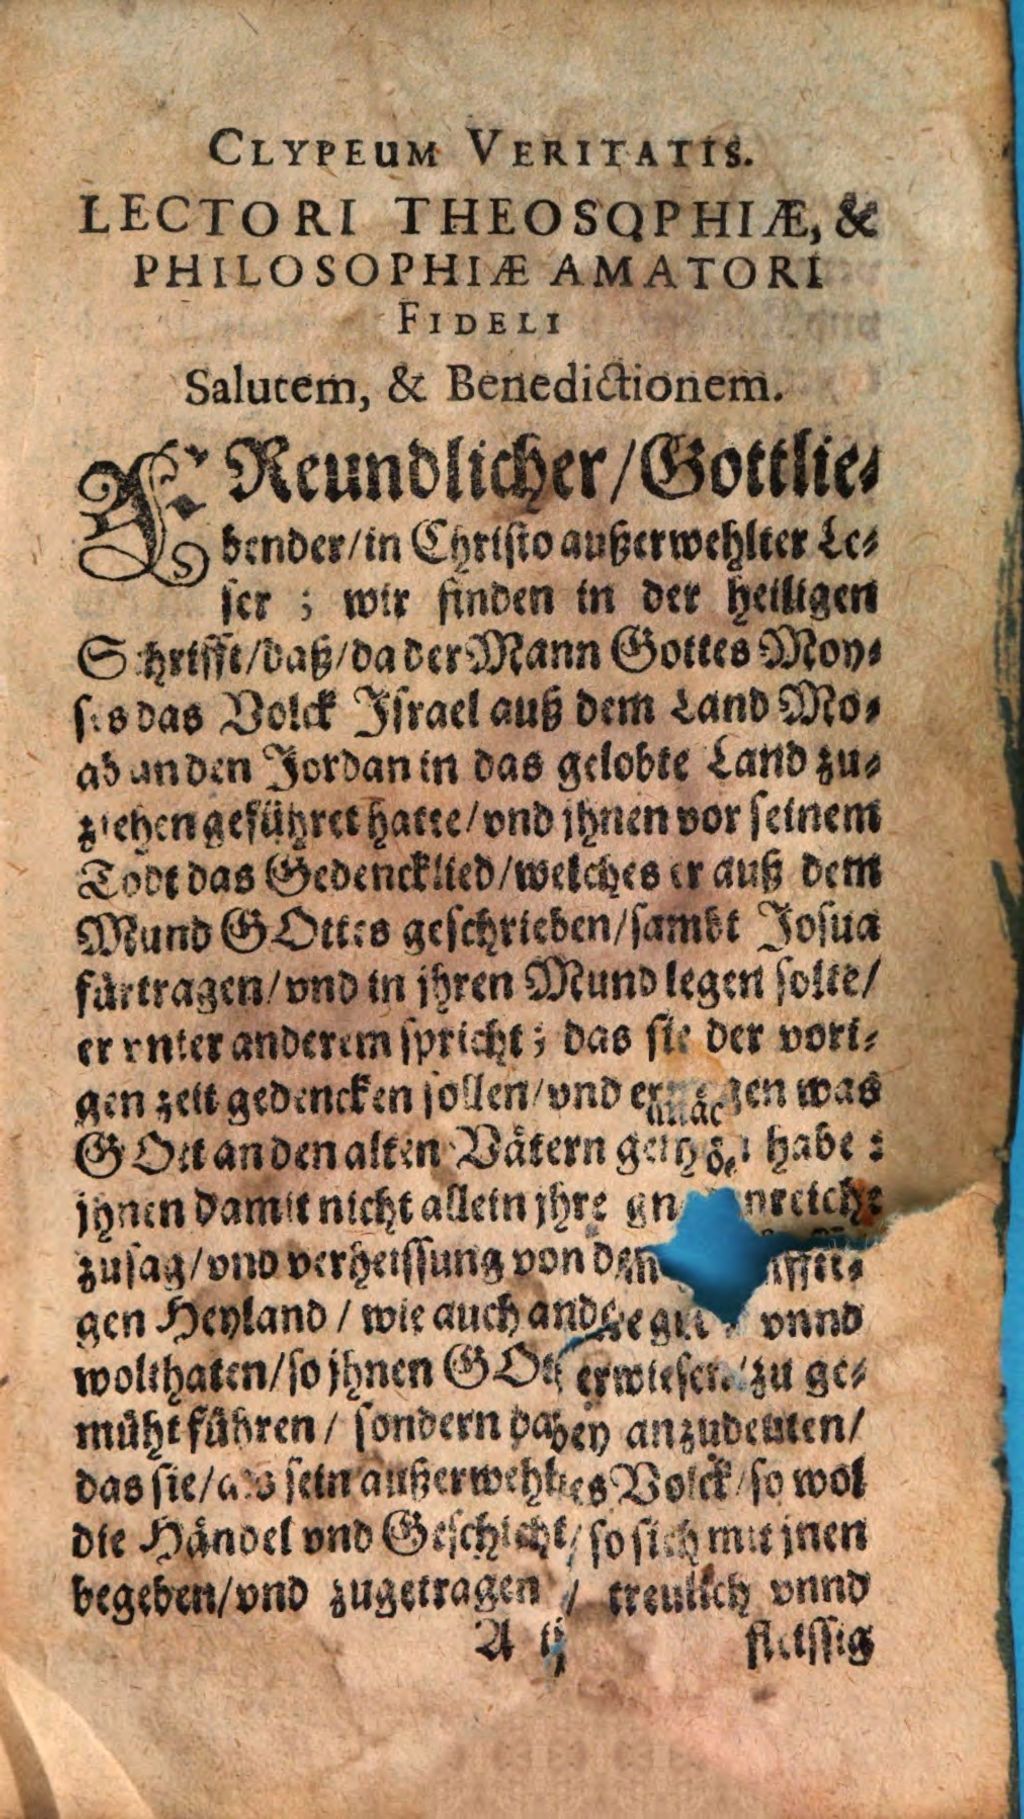 CLYPEUM VERITATIS.
LECTORI THEOSOPHIÆ, &
PHILOSOPHIÆ AMATORI
FIDELI
Salutem, & Benedictionem.
FReundlicher/Gottlie-
bender/in Christo außerwehlter Le-
ser ; wir finden in der heiligen
Schrifft/daß/da der Mann Gottes Moy-
ses das Volck Israel auß dem Land Mo-
ab an den Jordan in das gelobte Land zu-
ziehen geführet hatte/vnd jhnen vor seinem
Todt das Gedencklied/welches er auß dem
Mund GOttes geschrieben/sambt Josua
fürtragen/vnd in jhren Mund legen solte/
er vnter anderem spricht; das sie der vori-
gen zeit gedencken sollen/vnd was
GOtt an den alten Vätern habe :
jhnen damit nicht allein jhre
zusag/vnd verheissung von dem
gen Heyland / wie auch andere vnnd
wolthaten/so jhnen GOtt erwiesen/zu ge-
müht führen / sondern dabey anzudeuten/
das sie/als sein außerwehltes Volck/so wol
die Händel vnd Geschicht/so sich mit jnen
begeben/vnd zugetragen / treulich vnnd
A ij fleissig